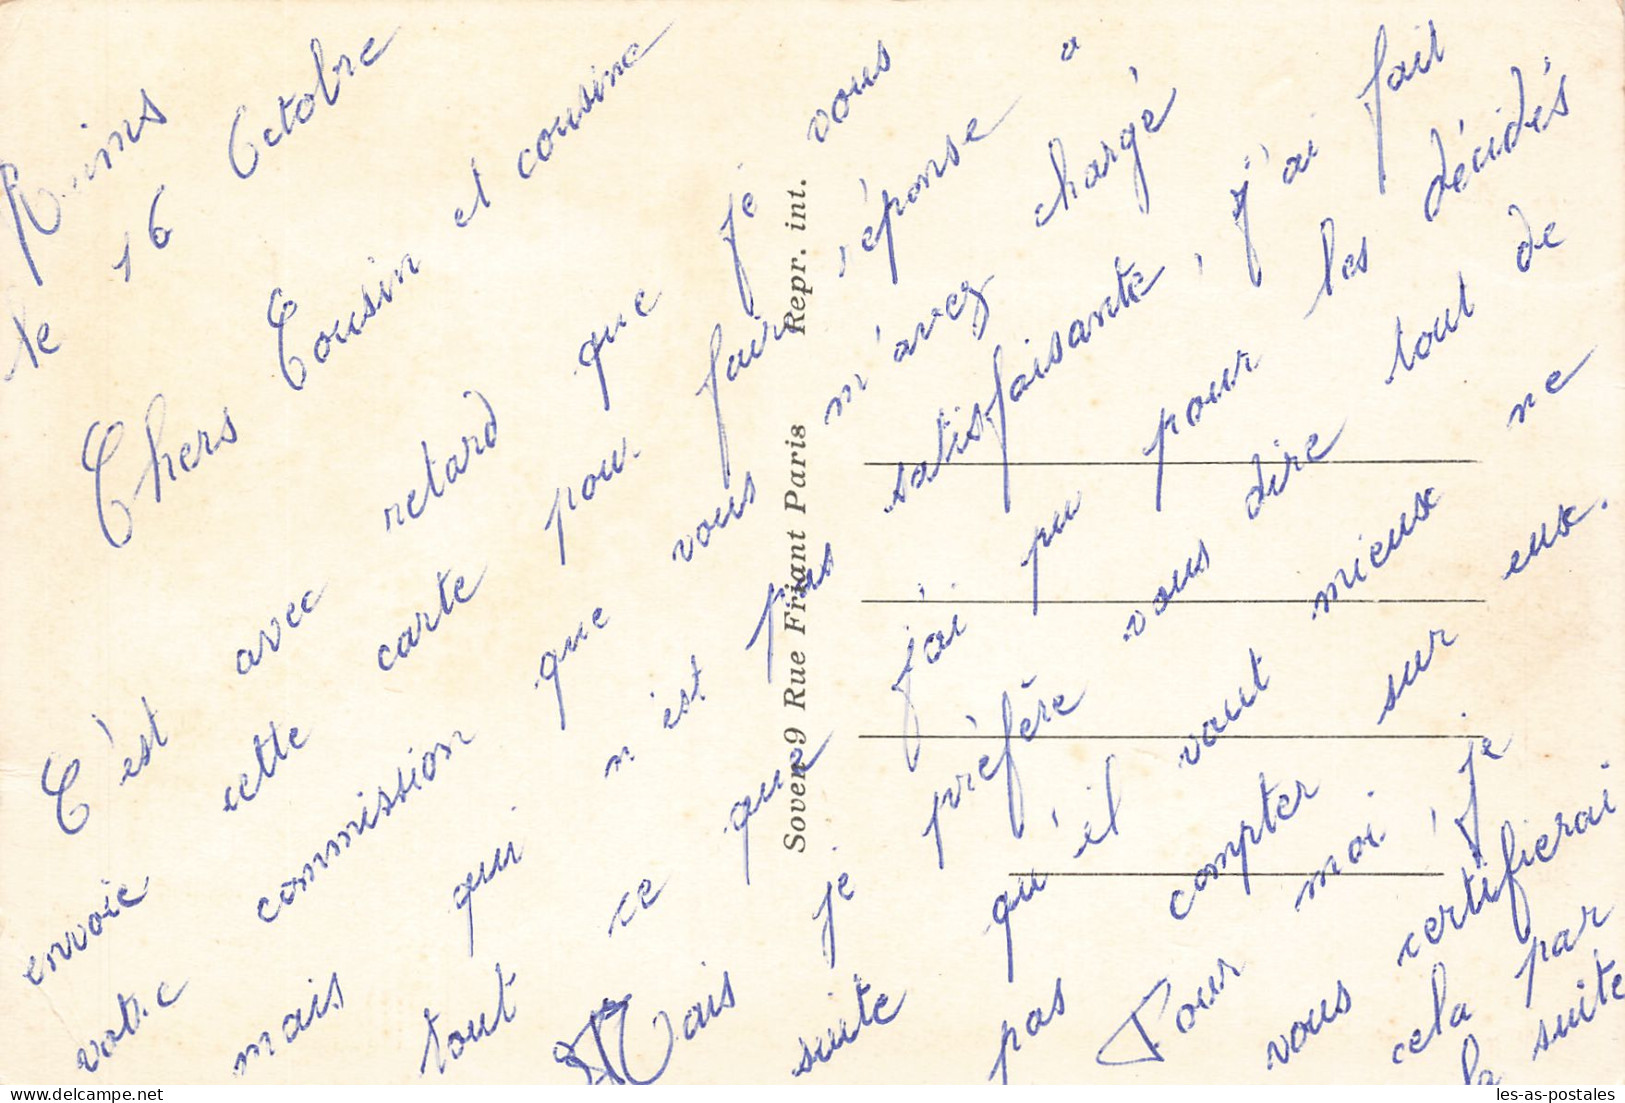 Reims
le 16 Octobre
Chers Cousin et cousine
C'est avec retard que je vous
envoie cette carte pour faire réponse à
votre commission que vous m'avez chargé
mais qui n'est pas satisfaisante, j'ai fait
tout ce que j'ai pu pour les décidés
Mais je préfère vous dire tout de
suite qu'il vaut mieux ne
pas compter sur eux.
Pour moi, je
vous certifierai
cela par
la suite
Soven 9 Rue Friant Paris Repr. int.
les-as-postales